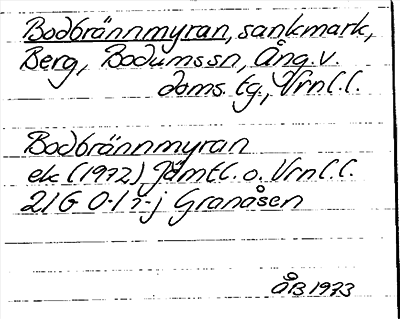 Bodbrännmyran, sankmark,
Berg, Bodumssn, Ång. v.
doms. tg., Vrnl. l.
Bodbrännmyran
ek (1972) Jämtl. o. Vrnl. l.
21G 0-1 i-j Granåsen
ÅB 1973